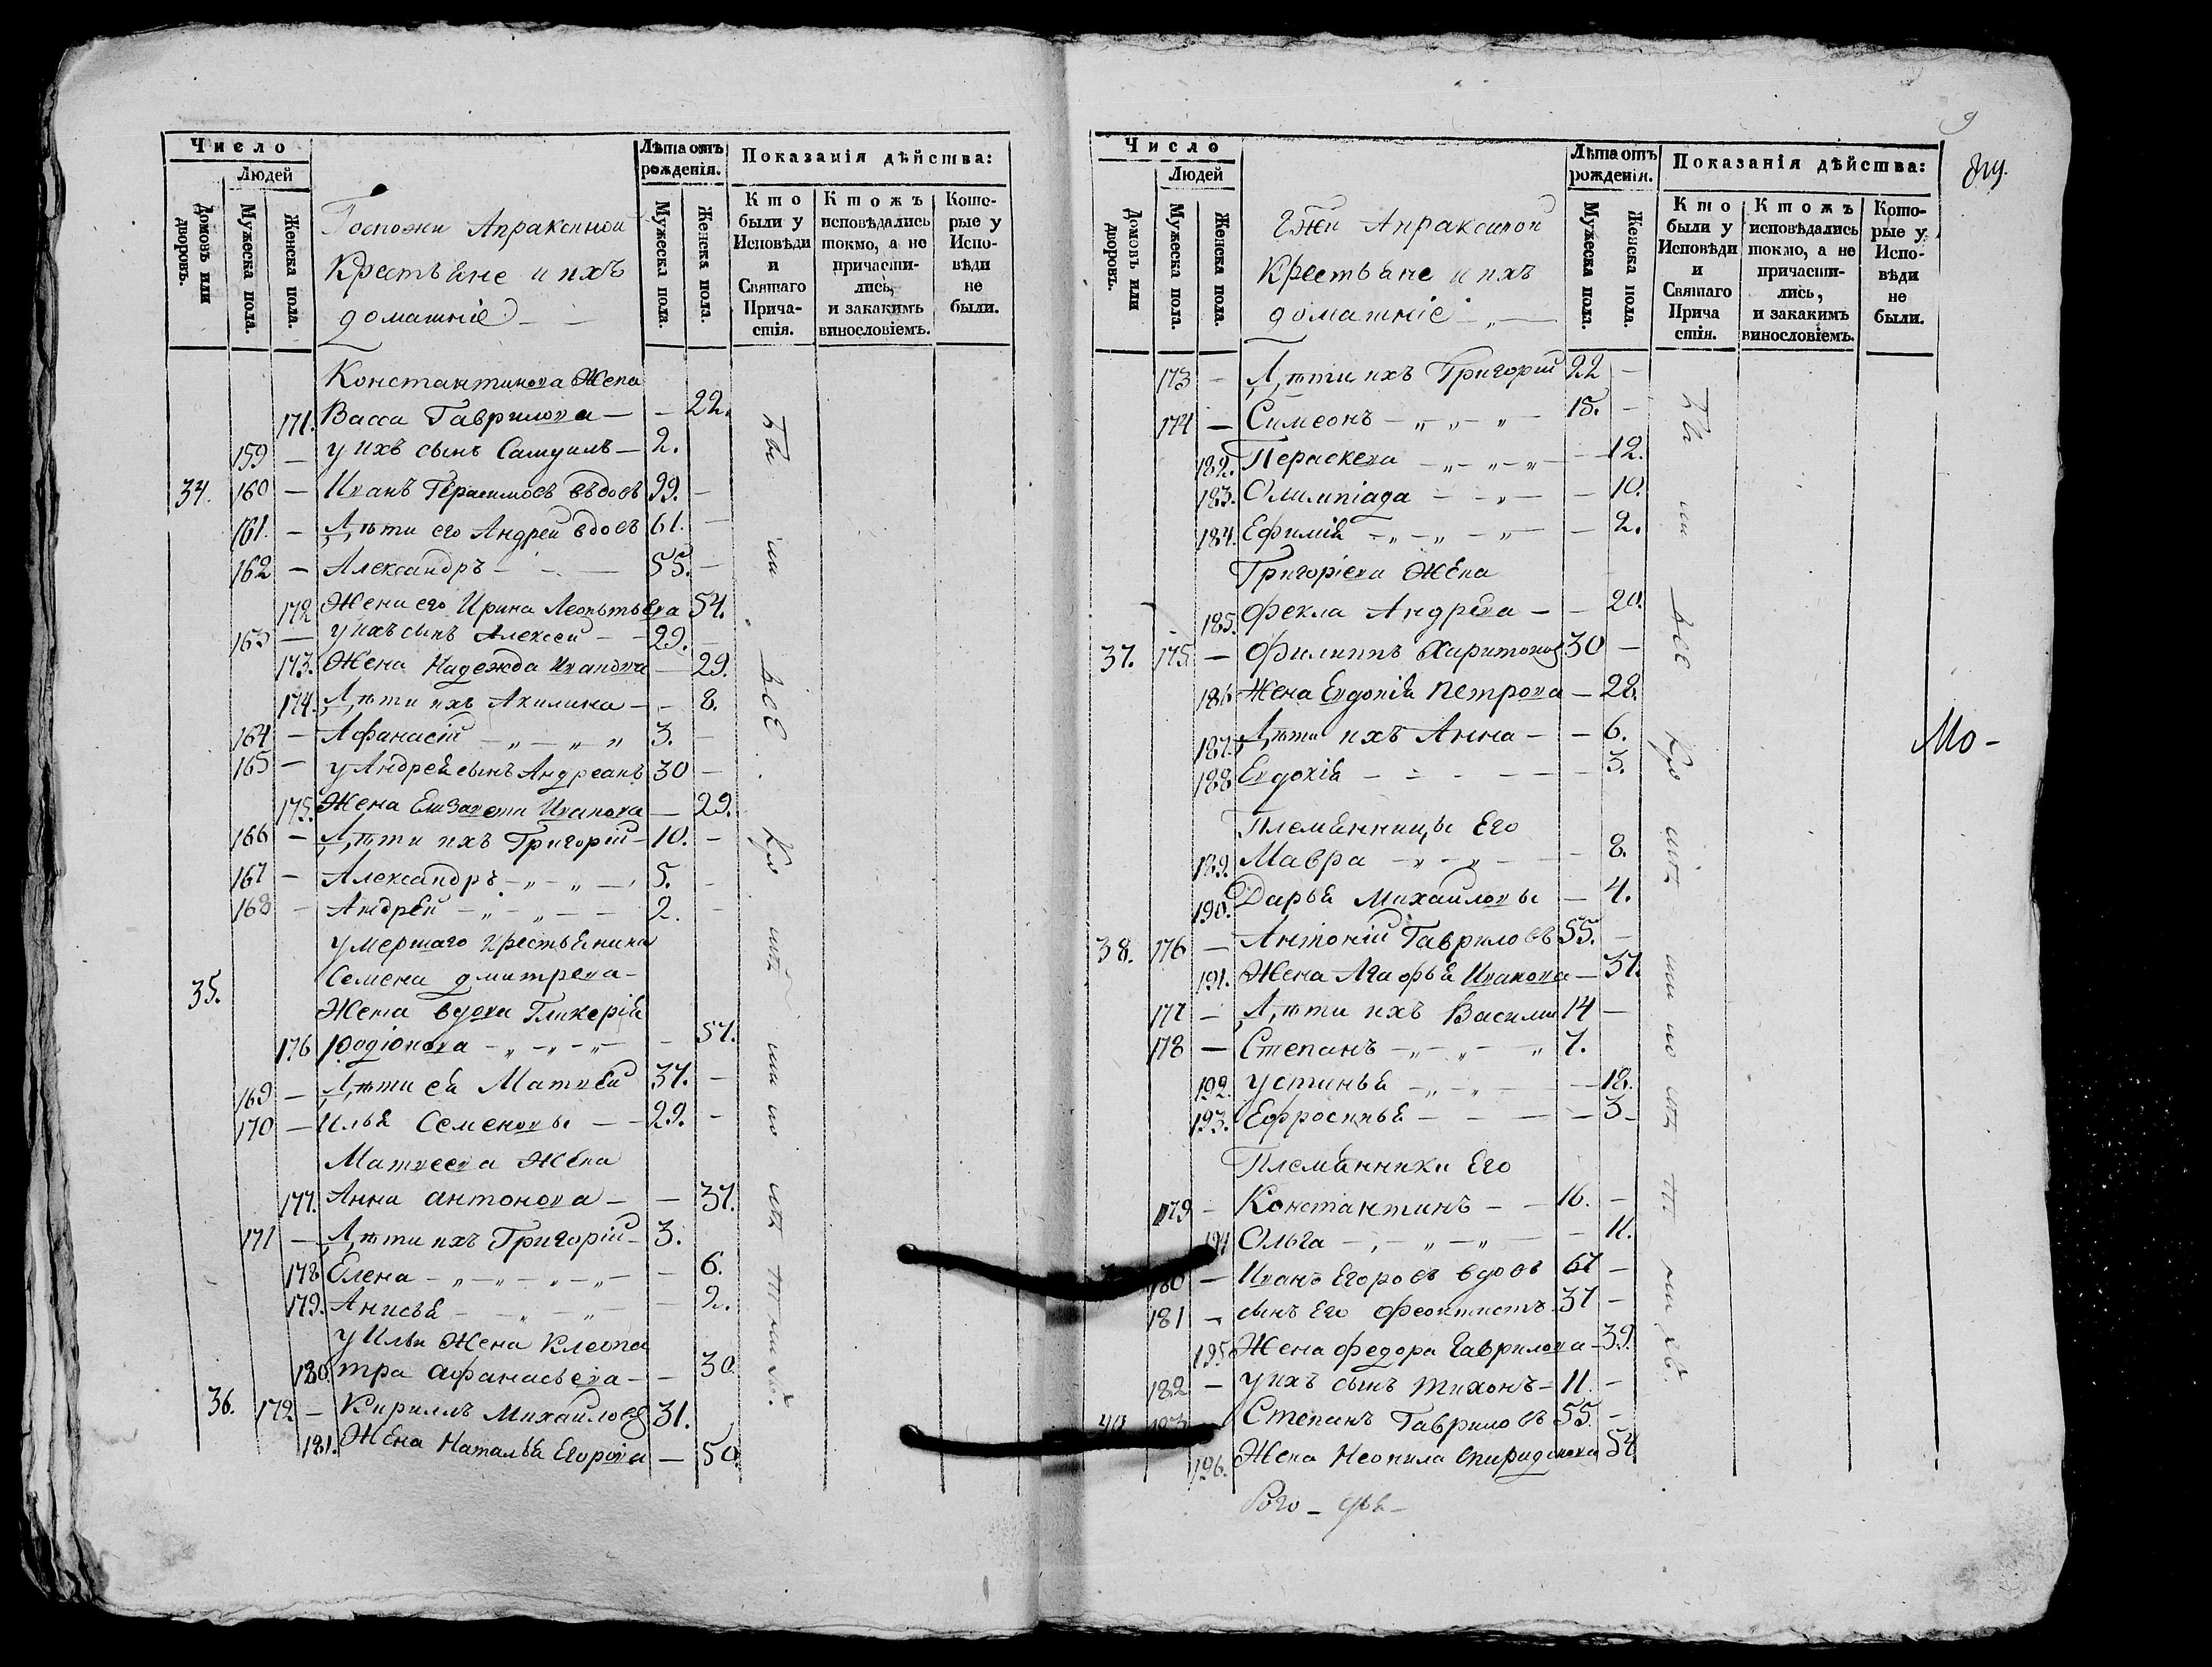 Число
Людей
Домовъ или дворовъ.
Мужеска пола.
Женска пола.
Госпожи Апраксиной
Крестьяне и ихъ
домашніе
Лѣта отъ рожденія.
Мужеска пола.
Женска пола.
Показанія дѣйства:
Кто были у Исповѣди и Святаго Причастія.
Ктожъ исповѣдались токмо, а не причастились, и закакимъ винословіемъ.
Которые у Исповѣди не были.
Константинова Жена
171. Васса Гаврилова — — 22.
159 — у ихъ сынъ Самуилъ — 2.
34. 160 — Иванъ Герасимовъ вдовъ 99. —
161. — Дѣти его Андрей вдовъ 61. —
162 — Александръ — 55. —
172 Жена его Ирина Леонтьева 54.
163 — у ихъ сынъ Алексей — 29. —
173. Жена Надежда Иванова — 29.
174. Дѣти ихъ Акилина — — 8.
164 — Афанасій — „ — „ „ 3. —
165 — у Андрея сынъ Андреанъ 30 —
175. Жена Елизавета Иванова — 29.
166 — Дѣти ихъ Григорій — 10. —
167 — Александръ — „ — „ — 5. —
168 — Андрей — „ — „ — — 2. —
умершаго Крестьянина
35. Семена Дмитрева —
Жена вдова Гликерія
176 Родіонова — „ — „ — „ — — 57.
169 — Дѣти ея Матвей 37. —
170 — Илья Семеновы — — 29. —
Матвеева Жена
177. Анна Антонова — — 37.
171 — Дѣти ихъ Григорій — 3.
178 Елена — „ — „ — „ — „ — — 6.
179. Анисья — „ — „ — — 2.
у Ильи Жена Клеопа
180. тра Афанасьева — — 30.
36. 172 — Кириллъ Михайловъ 31.
181. Жена Наталья Егорова — 50.
9
Число
Людей
Домовъ или дворовъ.
Мужеска пола.
Женска пола.
Гжи Апраксиной
Крестьяне и ихъ
домашніе — „ —
Лѣта отъ рожденія.
Мужеска пола.
Женска пола.
Показанія дѣйства:
Кто были у Исповѣди и Святаго Причастія.
Ктожъ исповѣдались токмо, а не причастились, и закакимъ винословіемъ.
Которые у Исповѣди не были.
173 — Дѣти ихъ Григорій 22 —
174 — Симеонъ — „ „ — „ — 15. —
182. Параскева — „ — „ — „ — — 12.
183. Олимпіада — — „ — — 10.
184. Ефимія — „ — „ — „ — — 2.
Григоріева Жена
185. Фекла Андрева — — 20.
37. 175 — Филиппъ Харитоновъ 30 —
186 Жена Евдокія Петрова — 28.
187. Дѣти ихъ Анна — — 6.
188 Евдокія — — — — — 3.
Племянницы Его
189. Мавра — „ — „ — — — 8.
190. Дарья Михайловы — 4.
38. 176 — Антоній Гавриловъ 55. —
191. Жена Агафья Иванова — 37.
177 — Дѣти ихъ Василій 14 —
178 — Степанъ — „ — „ — „ 7.
192. Устинья — „ — „ — — 18.
193. Ефросинья — — — — 3 —
Племянники Его
179 — Константинъ — — 16. —
194 Ольга — „ — „ — „ — — 11.
180 — Иванъ Егоровъ вдовъ 67 —
181 — сынъ Его Феоктистъ 37 —
195. Жена Федора Гаврилова — 39.
182 — у ихъ сынъ Тихонъ — 11. —
40 183 Степанъ Гавриловъ 55. —
196. Жена Неонила Спиридонова 54
Мо-